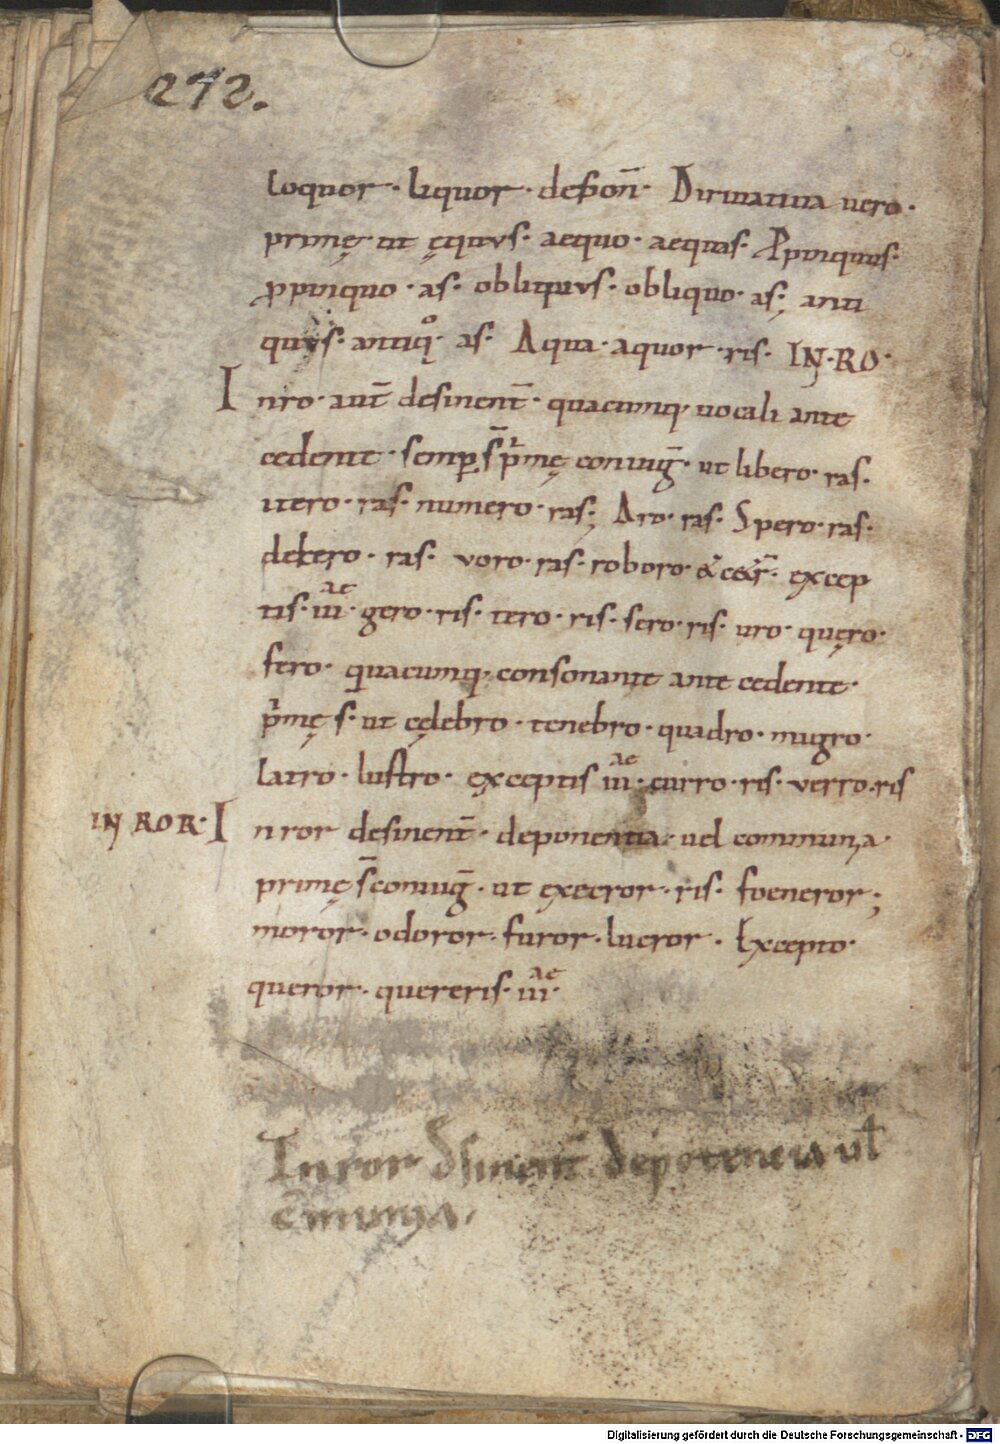 272.
loquor · liquor · depoñ · Diriuatiua uero ·
primę ut ęquus · aequo · aequas · Ꝓpinquus ·
ꝓpinquo · as · obliquus · obliquo · as; anti
quus · antiq̊ · as · Aqua · aquor · ris · IN · RO ·
Inro · aut̄ desinent̄ · quacumq; uocali ante
cedente · semp̱ s̄ p̄mę coniug̃ · ut libero · ras ·
itero · ras · numero · ras; Aro · ras · Spero · ras ·
ras · voro · ras · roboro · &ce&r̄ · excep
tis · iii ae · gero · ris · tero · ris · sero · ris · uro · quęro ·
fero · quacumq; consonante ante cedente ·
p̄mę s · ut cęlebro · tenebro · quadro · migro ·
latro · lustro · exceptis iii ae · curro · ris · verro · ris
IN ROR · Inror desinent̄ · deponentia · uel communia ·
primę s̄ coniug̃ · ut execror · ris · foeneror;
moror · odoror · furor · lucror · Excepto ·
queror · quereris · iii ae ·
Inror dsinent̄ depotencia ul̄
c̄munia ·
Digitalisierung gefördert durch die Deutsche Forschungsgemeinschaft - DFG